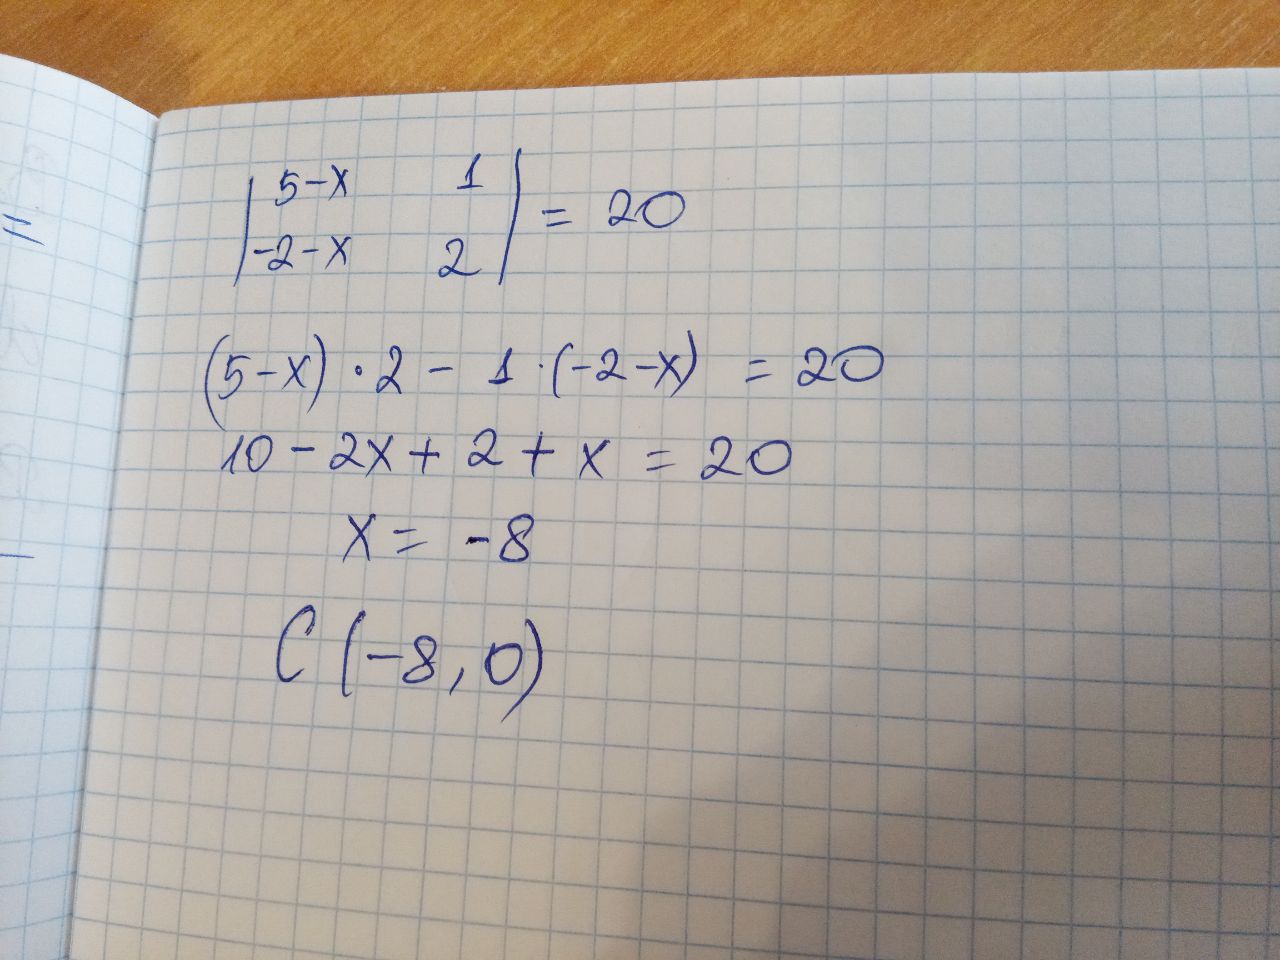 =
| 5-x 1 |
| -2-x 2 | = 20
(5-x) · 2 - 1 · (-2-x) = 20
10 - 2x + 2 + x = 20
x = -8
C (-8, 0)